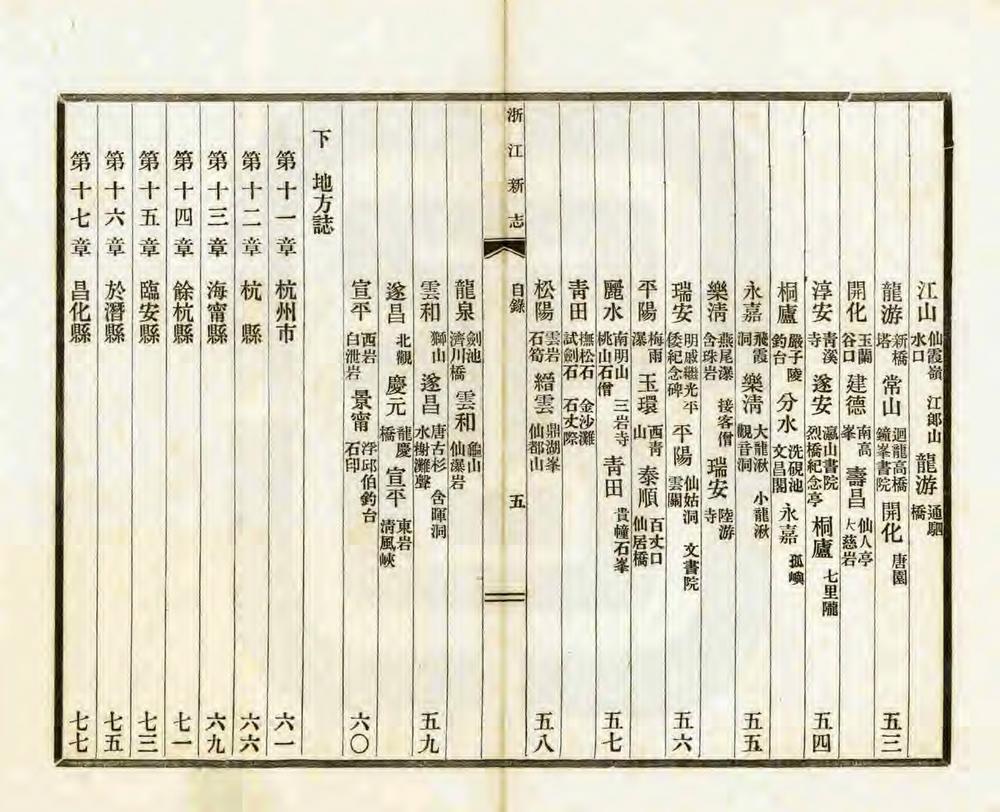 江山 仙霞嶺 江郎山 水口 龍游 通駟橋
龍游 新橋塔 常山 迴龍高橋 鐘峯書院 開化 唐園 五三
開化 玉蘭谷口 建德 南高峯 壽昌 仙人亭 大慈岩
淳安 青溪寺 遂安 瀛山書院 烈橋紀念亭 桐廬 七里隴 五四
桐廬 嚴子陵釣台 分水 洗硯池 文昌閣 永嘉 孤嶼
永嘉 飛霞洞 樂清 大龍湫 小龍湫 觀音洞 五五
樂清 燕尾瀑 接客僧 含珠岩 瑞安 陸游寺
瑞安 明戚繼光平倭紀念碑 平陽 仙姑洞 文書院 雲關 五六
平陽 梅雨瀑 玉環 西青山 泰順 百丈口 仙居橋
麗水 南明山 三岩寺 桃山石僧 青田 貴幢石峯 五七
青田 撫松石 金沙灘 試劍石 石丈際
松陽 雲岩 石筍 縉雲 鼎湖峯 仙都山 五八
浙江新志 目錄 五
龍泉 劍池 濟川橋 雲和 龜山 仙瀑岩
雲和 獅山 遂昌 唐古杉 含暉洞 水榭灘聲 五九
遂昌 北觀 慶元 龍慶橋 宣平 東岩 清風峽
宣平 西岩 白泄岩 景甯 浮邱伯釣台 石印 六〇
下 地方誌
第十一章 杭州市 六一
第十二章 杭縣 六六
第十三章 海甯縣 六九
第十四章 餘杭縣 七一
第十五章 臨安縣 七三
第十六章 於潛縣 七五
第十七章 昌化縣 七七